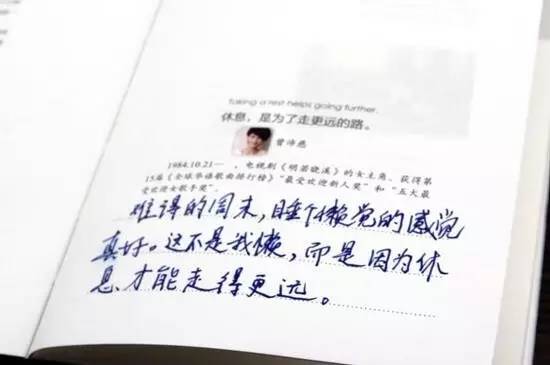 Taking a rest helps going further.
休息，是为了走更远的路。
曾沛慈
1984.10.21一，电视剧《明若晓溪》的女主角，获得第
15届《全球华语歌曲排行榜》“最受欢迎新人奖”和“五大最
受欢迎女歌手奖”。
难得的周末，睡个懒觉的感觉
真好。这不是我懒，而是因为休
息，才能走得更远。